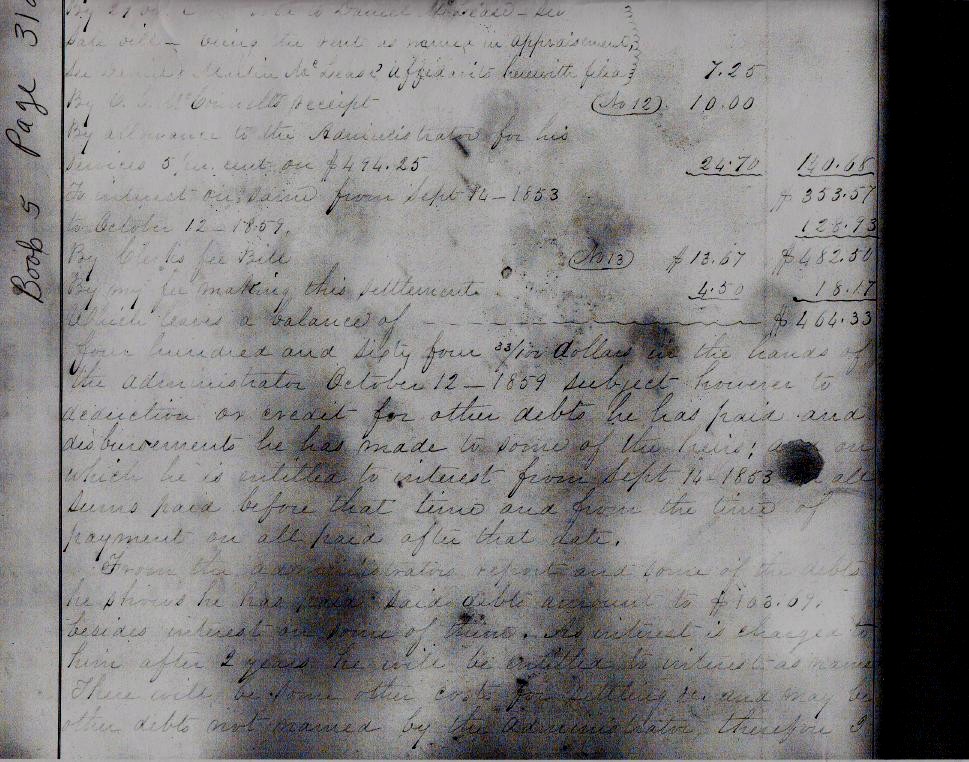 Book 5 Page 310
By to Daniel
Sale bill – being the rent as named in appraisement,
See Daniel & Martin McLease affidavits herewith filed 7.25
By McConnells receipt (No 12) 10.00
By allowance to the Administrator for his
services 5 per cent on $494.25 24.70 140.68
To interest on same from Sept 14 – 1853 $353.57
to October 12 – 1859. 128.93
By Clerks fee Bill (No 13) $13.67 $482.50
By my fee making this settlement 4.50 18.17
Which leaves a balance of $464.33
four hundred and sixty four 33/100 dollars in the hands of
the administrator October 12 – 1859 subject however to
deduction or credit for other debts he has paid and
disbursements he has made to some of the heirs; on
which he is intitled to interest from Sept 14 – 1853 all
sums paid before that time and from the time of
payment on all paid after that date.
From the administrators report and some of the debts
he shows he has paid said debts amount to $103.69.
besides interest on some of them. As interest is charged to
him after 2 years he will be intitled to interest as
There will be some other costs for settling and may be
other debts not named by the administrator, therefore I